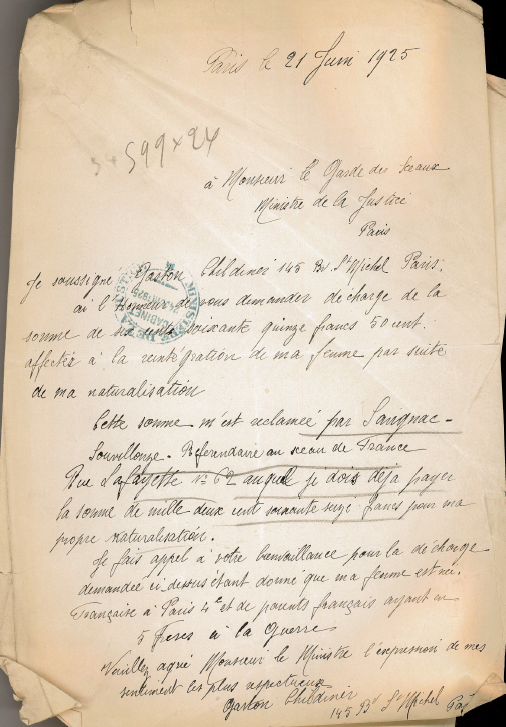 Paris le 21 Juin 1925
599 x 24
à Monsieur le Garde des sceaux
Ministre de la Justice
Paris
Je soussigné Gaston Childiner 145 Bd St Michel Paris.
ai l'Honneur de vous demander décharge de la
somme de six cents soixante quinze francs 50 cent.
affectés à la reintégration de ma femme par suite
de ma naturalisation
Cette somme m'est reclameé par
Referendaire au sceau de France
Rue Lafayette No 62 auquel je dois deja payer
la somme de mille deux cent soixante seize francs pour ma
propre naturalisation.
Je fais appel à votre bienveillance pour la décharge
demandée ci dessus étant donné que ma femme est née
Française à Paris 4e et de parents français ayant eu
5 freres à la Guerre
Veuillez agréé Monsieur le Ministre l'expression de mes
sentiment les plus respectueux
Gaston Childiner
145 Bd St Michel Paris